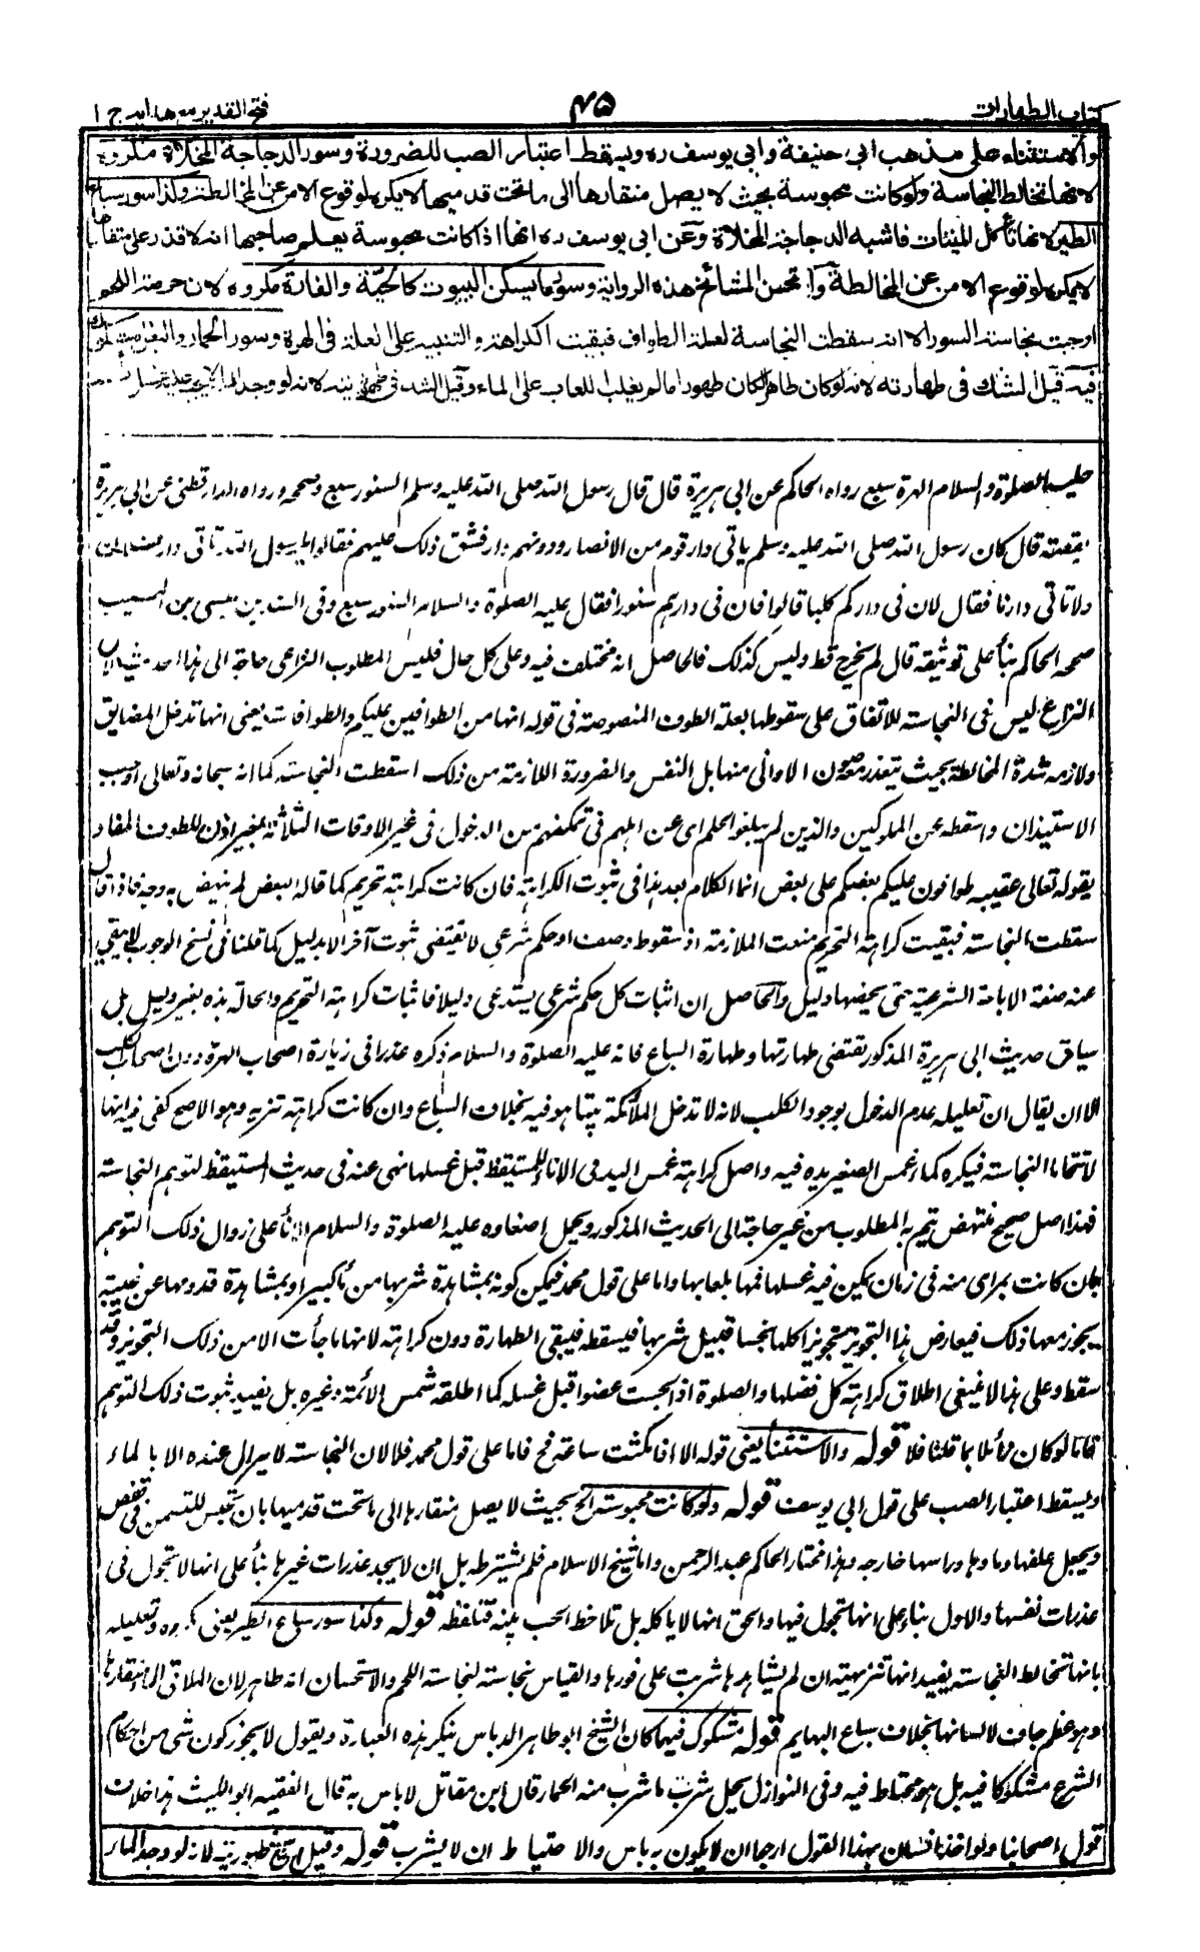 كتاب الطهارات
۴۵
فتح القدير مع هدايه ج ۱
والاستثناء على مذهب ابى حنيفة وابي يوسف ره ويسقط اعتبار الصب للضرورة وسور الدجاجة المخلاة مكروه
لانها تخالط النجاسة ولو كانت محبوسة بحيث لا يصل منقارها الى ما تحت قدميها لا يكره لوقوع الامن عن المخالطة وكذا سور سباع
الطير لانها تأكل الميتات فاشبه الدجاجة المخلاة وعن ابى يوسف ره انها اذا كانت محبوسة يعلم صاحبها انه لا قذر على منقارها
لا يكره لوقوع الامن عن المخالطة واستحسن المشائخ هذه الرواية وسور ما يسكن البيوت كالحية والفارة مكروه لان حرمة اللحم
اوجبت نجاسة السور الا انه سقطت النجاسة لعلة الطواف فبقيت الكراهة والتنبيه على العلة فى الهرة وسور الحمار والبغل مشكوك
فيه قيل الشك فى طهارته لانه لو كان طاهرا لكان طهورا ما لم يغلب اللعاب على الماء وقيل الشك فى طهوريته لانه لو وجد الماء لا يجب عليه غسل
عليه الصلوة والسلام الهرة سبع رواه الحاكم عن ابى هريرة قال قال رسول الله صلى الله عليه وسلم السنور سبع وصححه ورواه الدارقطنى عن ابى هريرة
بقصته قال كان رسول الله صلى الله عليه وسلم ياتى دار قوم من الانصار ودونهم دار فشق ذلك عليهم فقالوا يا رسول الله تاتى دار فلان
ولا تاتى دارنا فقال لان فى داركم كلبا قالوا فان فى دارهم سنورا فقال عليه الصلوة والسلام السنور سبع وفى السند بن عيسى بن المسيب
صححه الحاكم بناء على توثيقه قال لم يجرح قط وليس كذلك فالحاصل انه مختلف فيه وعلى كل حال فليس للمطلوب النزاعى حاجة الى هذا الحديث لان
النزاع ليس فى النجاسة للاتفاق على سقوطها بعلة الطوف المنصوصة فى قوله انها من الطوافين عليكم والطوافات يعنى انها تدخل المضايق
ولازمه شدة المخالطة بحيث يتعذر معه صون الاوانى منها بل النفس والضرورة اللازمة من ذلك اسقطت النجاسة كما انه سبحانه وتعالى اوجب
الاستيذان واسقطه عن المملوكين والذين لم يبلغوا الحلم اى عن اهلهم فى تمكينهم من الدخول فى غير الاوقات الثلاثة بغير اذن للطوف المفاد
بقوله تعالى عقيبه طوافون عليكم بعضكم على بعض انما الكلام بعد هذا فى ثبوت الكراهة فان كانت كراهة تحريم كما قاله البعض لم ينهض به وجه فاذا قال
سقطت النجاسة فبقيت كراهة التحريم منعت الملازمة اذ سقوط وصف او حكم شرعى لا يقتضى ثبوت آخر الا بدليل كما قلنا فى نسخ الوجوب لا يبقى
عنه صفة الاباحة الشرعية حتى يخصها دليل والحاصل ان اثبات كل حكم شرعى يستدعى دليلا فاثبات كراهة التحريم والحالة هذه بغير دليل بل
سياق حديث ابى هريرة المذكور تقتضى طهارتها وطهارة السباع فانه عليه الصلوة والسلام ذكره عذرا فى زيارة اصحاب الهرة دون اصحاب الكلب
الا ان يقال ان تعليله عدم الدخول بوجود الكلب لانه لا تدخل الملائكة بيتا هو فيه بخلاف السباع وان كانت كراهة تنزيه وهو الاصح كفى فيه انها
لا تتحاما النجاسة فيكره كماء غمس الصغير يده فيه واصل كراهة غمس اليد فى الاناء للمستيقظ قبل غسلها نهى عنه فى حديث المستيقظ لتوهم النجاسة
فهذا اصل صحيح منتهض يتم به المطلوب من غير حاجة الى الحديث المذكور ويحمل اصغاوه عليه الصلوة والسلام الاناء على زوال ذلك التوهم
بان كانت بمراى منه فى زمان يمكن فيه غسلها فمها بلعابها واما على قول محمد فيمكن كونه بمشاهدة شربها من ماء كثير او بمشاهدة قدومها عن غيبة
يجوز معها ذلك فيعارض هذا التجويز بتجويز اكلها نجسا قبيل شربها فيسقط فيبقى الطهارة دون كراهة لانها ما جأت الا من ذلك التجويز وقد
سقط وعلى هذا لا ينبغى اطلاق كراهة كل فضلها والصلوة اذا لحست عضوا قبل غسله كما اطلقه شمس الأئمة وغيره بل بقيد ثبوت ذلك التوهم
فاما لو كان زائلا بما قلنا فلا قوله والاستثناء يعنى قوله الا اذا مكثت ساعة فح فاما على قول محمد فلا لان النجاسة لا يزال عنده الا بالماء
ويسقط اعتبار الصب على قول ابى يوسف قوله ولو كانت محبوسة الخ بحيث لا يصل منقارها الى ما تحت قدميها بان تحبس للتسمن فى قفص
ويجعل علفها وماوها وراسها خارجه وهذا مختار الحاكم عبد الرحمن واما شيخ الاسلام فلم يشترطه بل ان لا يجد عذرات غيرها بناء على انها لا تجول فى
عذرات نفسها والاول بناء على انها تجول فيها والحق انها لا ياكله بل تلاحظ الحب بينه فتلقطه قوله وكذا سور سباع الطير يعنى مكروه وتعليله
بانها تخالط النجاسة يفيد انها تنزيهية ان لم يشاهدها شربت على فورها والقياس نجاسته لنجاسة اللحم والاستحسان انه طاهر لان الملاقى الماء منقارها
وهو عظم جاف لا لسانها بخلاف سباع البهايم قوله مشكوك فيها كان الشيخ ابو طاهر الدباس ينكر هذه العبارة ويقول لا يجوز كون شئ من احكام
الشرع مشكوكا فيه بل هو محتاط فيه وفى النوازل يحل شرب ما شرب منه الحمار قال ابن مقاتل لا باس به قال الفقيه ابو الليث هذا خلاف
قول اصحابنا ولو اخذ انسان بهذا القول ارجو ان لا يكون به باس والاحتياط ان لا يشرب قوله وقيل فى طهوريته لانه لو وجد الماء